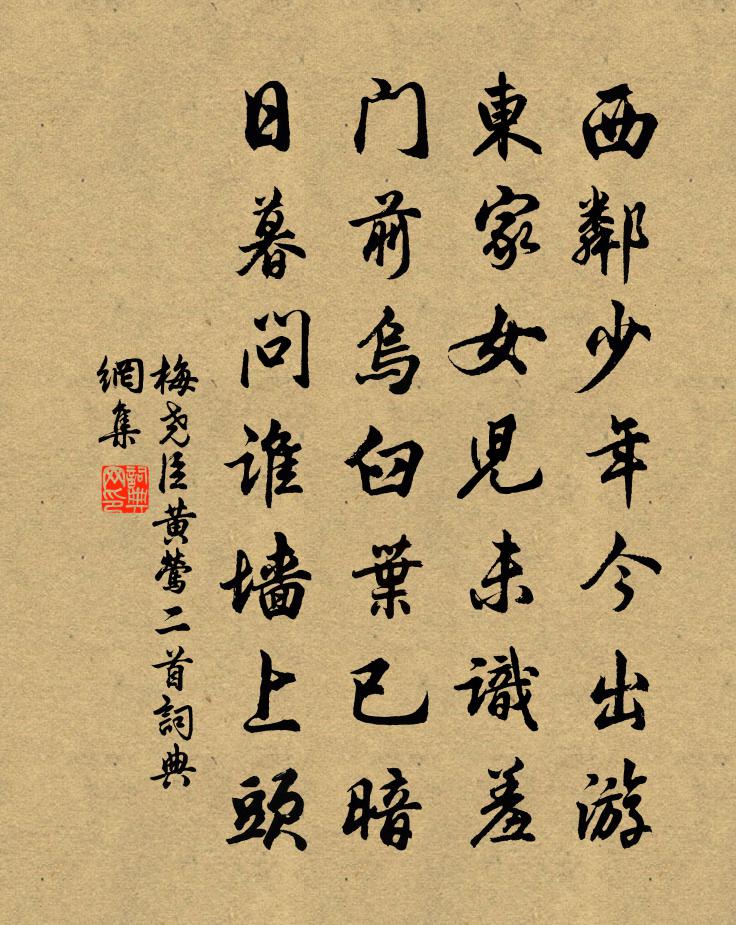 西鄰少年今出游
東家女児未識羞
门前烏臼葉已暗
日暮问谁墙上頭
梅尧臣黄鶯二首詞典
網集
詞典
网印